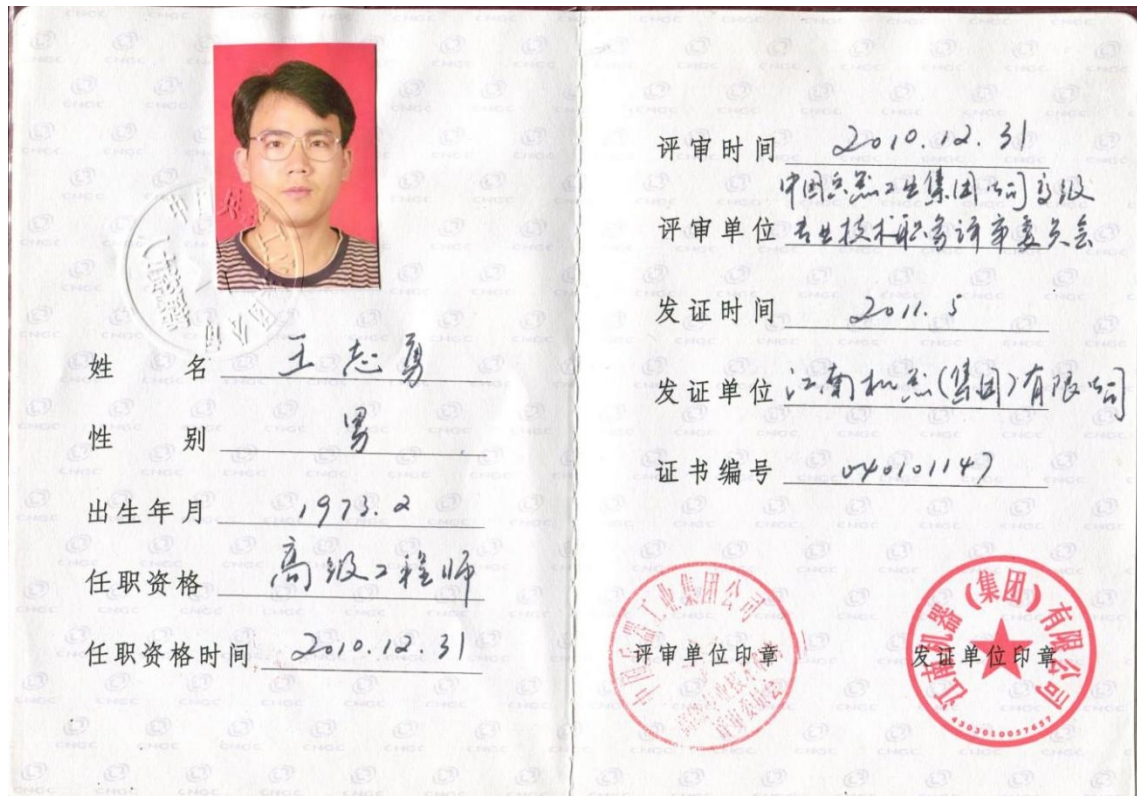 姓名 王志勇
性别 男
出生年月 1973.2
任职资格 高级工程师
任职资格时间 2010.12.31
评审时间 2010.12.31
中国兵器工业集团公司高级
评审单位 专业技术职务评审委员会
发证时间 2011.5
发证单位 江南机器(集团)有限公司
证书编号 040101147
中国兵器工业集团公司
评审单位印章
江南机器(集团)有限公司
发证单位印章
4303010057657
CNGC